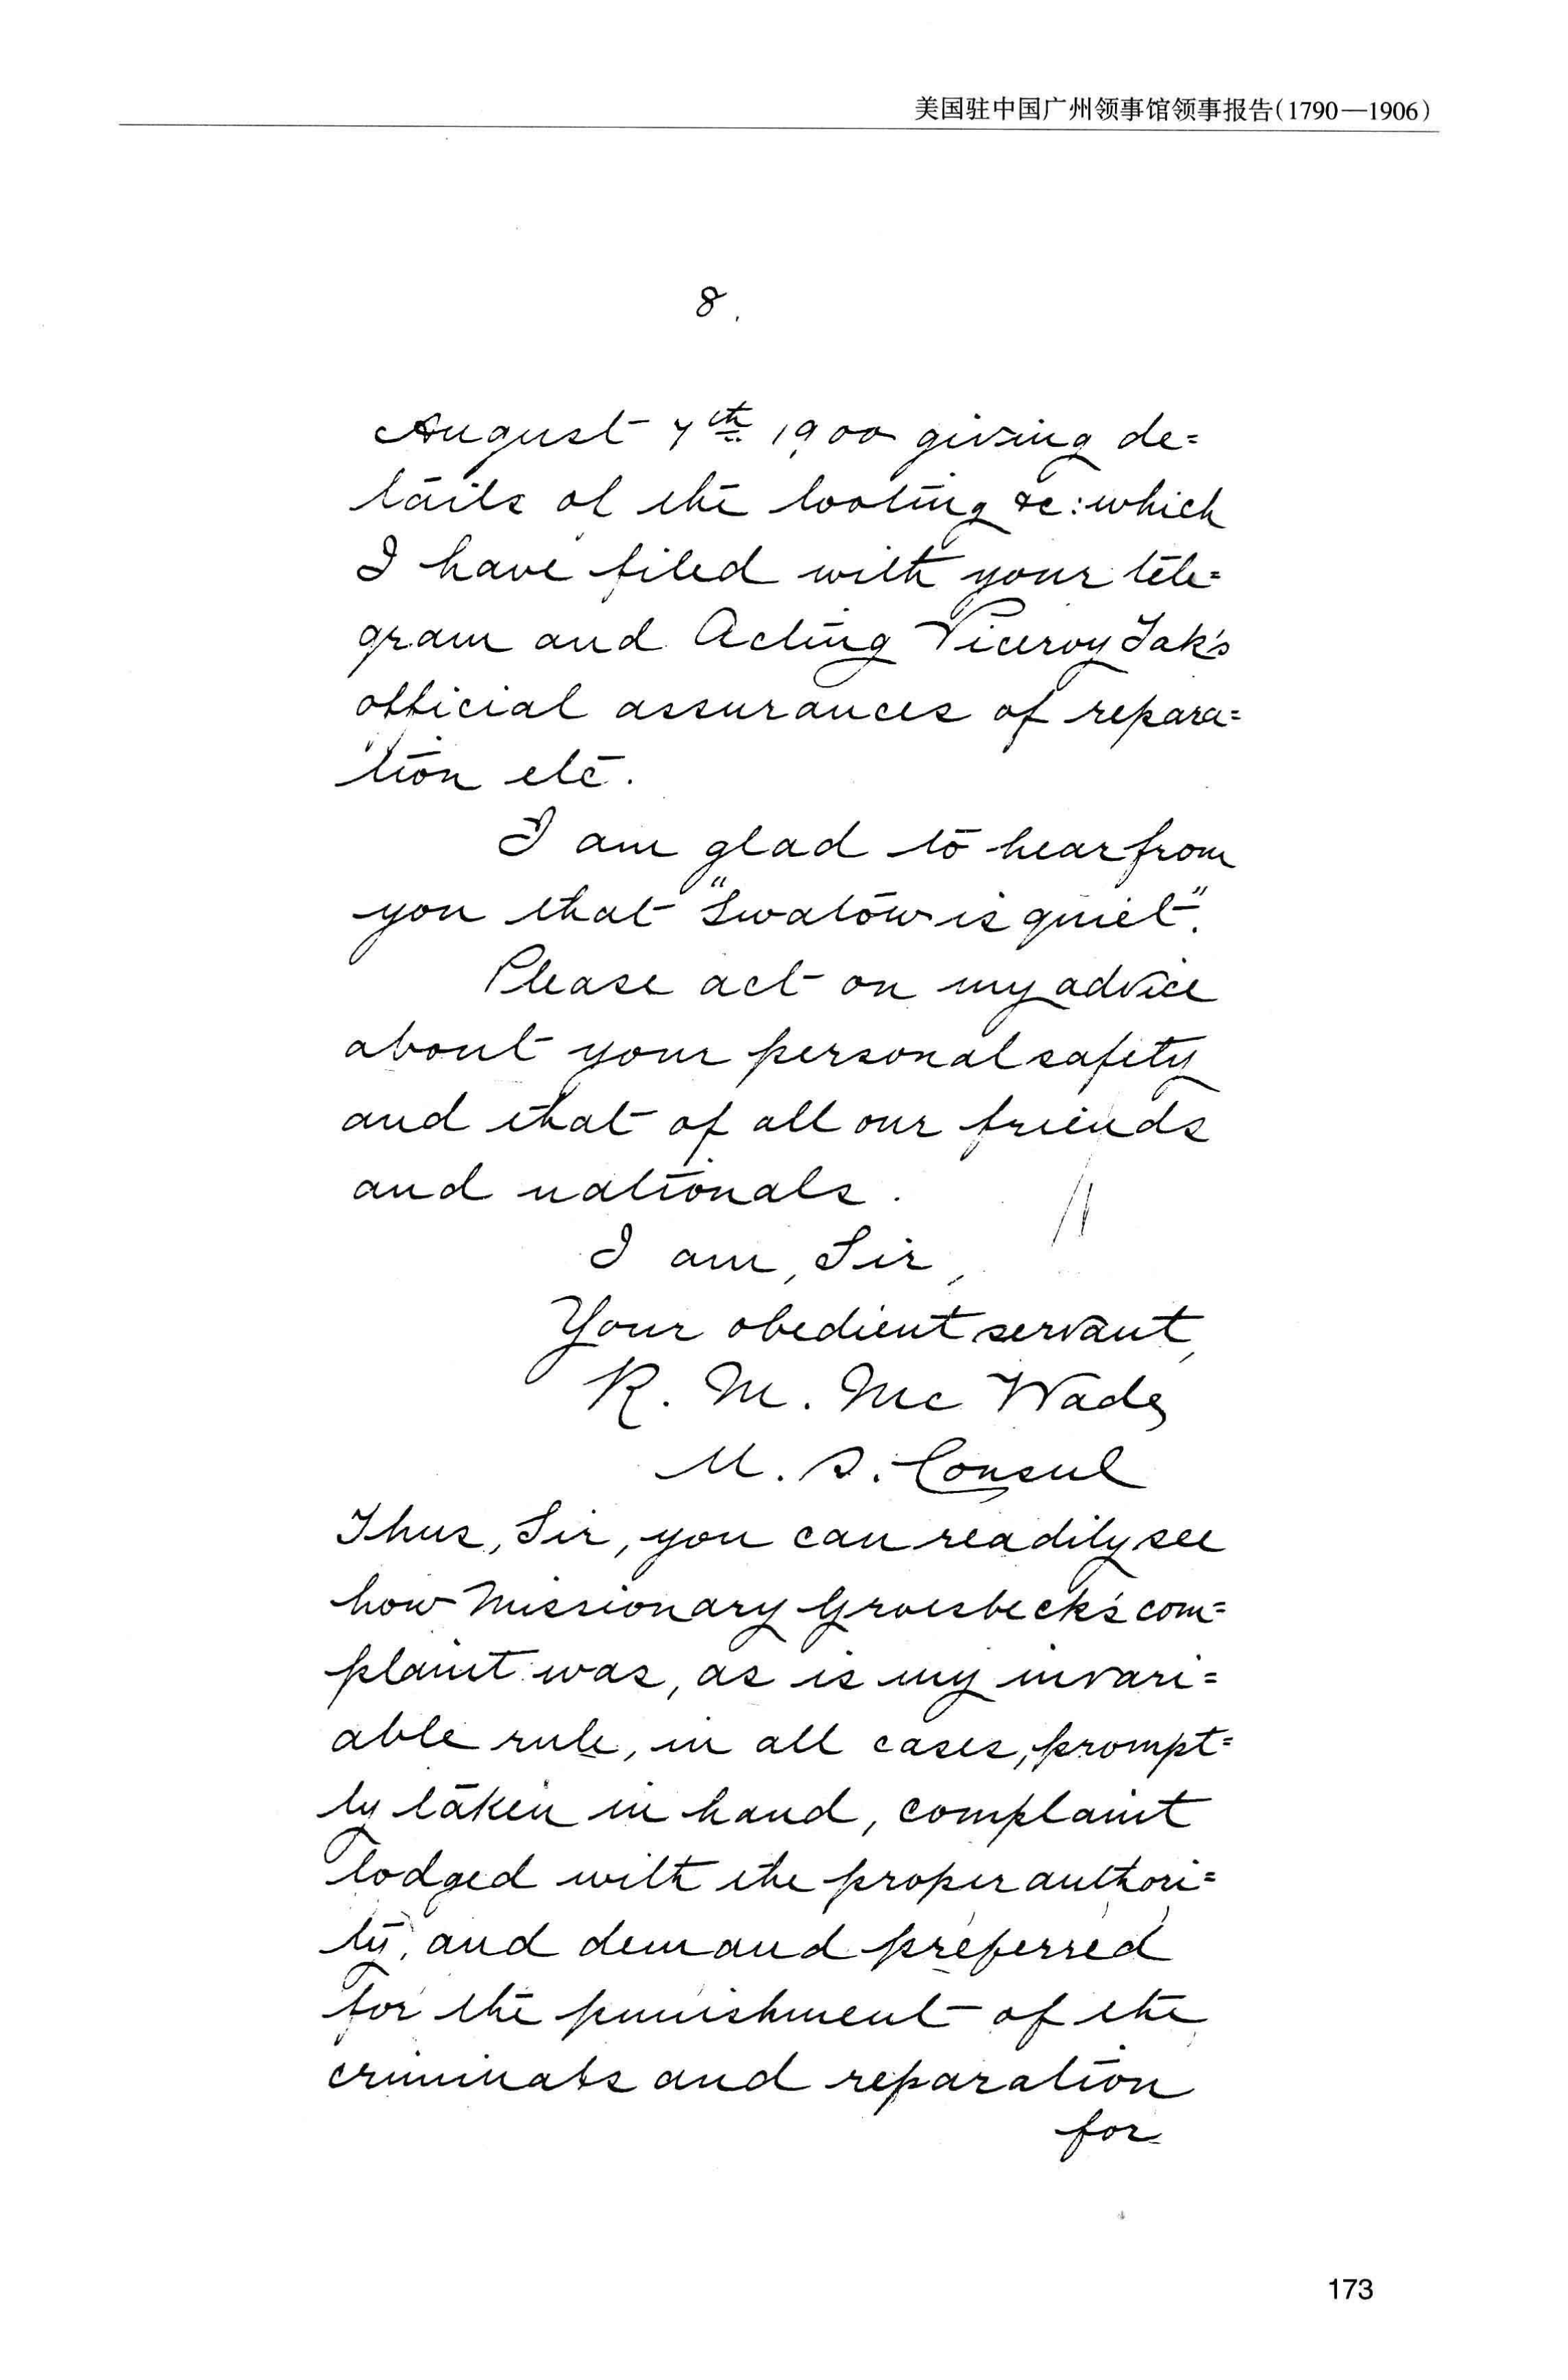 美国驻中国广州领事馆领事报告(1790—1906)
8.
August 7th 1900 giving de=
tails of the looting &c: which
I have filed with your tele=
gram and Acting Viceroy Tak's
official assurances of repara=
tion etc.
I am glad to hear from
you that "Swatow is quiet".
Please act on my advice
about your personal safety
and that of all our friends
and nationals.
I am, Sir,
Your obedient servant,
R. M. McWade
U. S. Consul
Thus, Sir, you can readily see
how Missionary Groesbeck's com=
plaint was, as is my invari=
able rule, in all cases, prompt=
ly taken in hand, complaint
lodged with the proper authori=
ty, and demand preferred
for the punishment of the
criminals and reparation
for
173